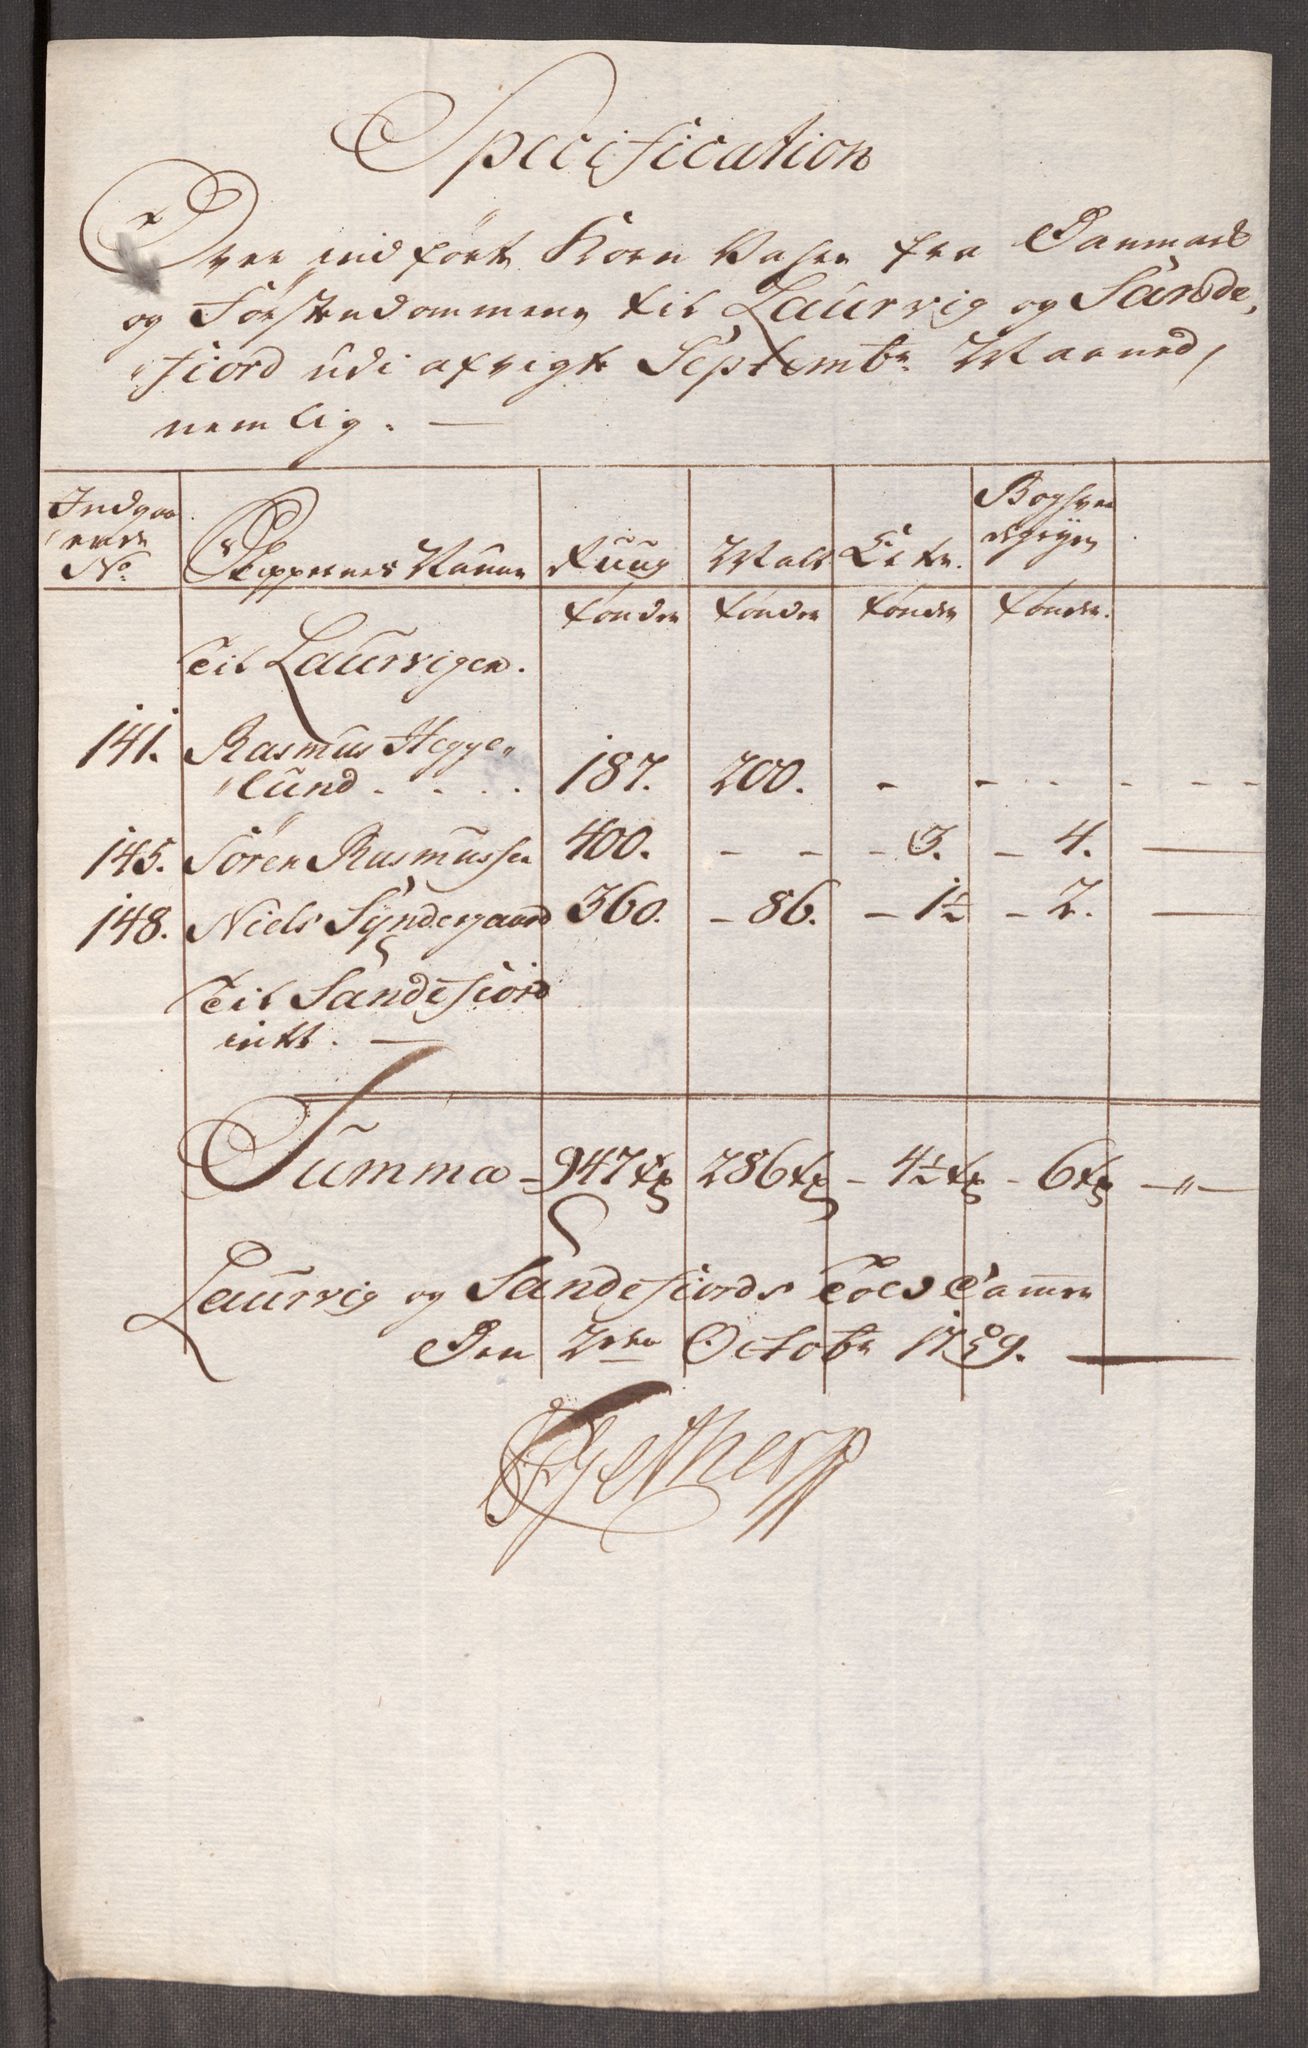 Specification
Over indført Korn Vahre fra Danmark
og Førstendommene til Laurvig og Sande,,
fiord udi afvigte Septembr Maaned,
nemlig. —
Indgaa
ende
No
Skippernes Nafne
Ruug
Malt
Erter.
Boghve
degryn
tønder tønder tønder tønder.
Til Laurvigen.
141. Rasmus Hegge,,
,,lund . . . 187. 200. - - - - - -
145. Sören Rasmussen 400. - - - 3. - 4. —
148. Niels Syndergaard 360. - 86. - 1½ - 2. —
Til Sandefiord
intet. —
Summa - 947 tr 286 tr - 4½ tr - 6 tr —„—
Laurvig og Sandefiords Told Cammer
Den 2den Octobr 1759. —